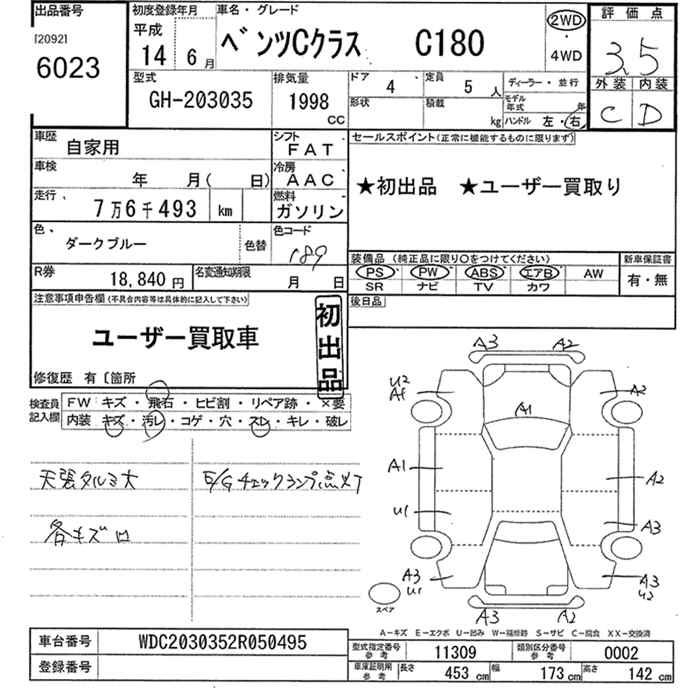 出品番号 初度登録年月 車名・グレード 評価点
[2092] 平成 2WD
6023 14年 6月 ベンツCクラス C180 4WD 3.5
型式 排気量 ドア 4 定員 5人 ディーラー・並行 外装 内装
GH-203035 1998cc 形状 積載 kg モデル年式 年 ハンドル 左・右 C D
車歴 自家用 シフト FAT セールスポイント(正常に機能するものに限ります)
車検 年 月( 日) 冷房 AAC ★初出品 ★ユーザー買取り
走行、 7万6千493 km 燃料 ガソリン
色、 ダークブルー 色替 色コード 189 装備品(純正品に限り〇をつけてください) 新車保証書
R券 18,840円 名変通知期限 月 日 PS PW ABS エアB AW 有・無
SR ナビ TV カワ
注意事項申告欄(不具合内容等は具体的に記入して下さい) 後日品
ユーザー買取車 初出品
修復歴 有〔箇所
検査員記入欄 FW キズ・飛石・ヒビ割・リペア跡・×要
内装 キズ・汚レ・コゲ・穴・スレ・キレ・破レ
天張タルミ大 E/Gチェックランプ点灯
各キズ
A3 A2
U2 A1 A2
A1
A1 A2
U1 A3
A3 U1 A3 U2
スペア A3 A2
A-キズ E-エクボ U-凹み W-補修跡 S-サビ C-腐食 XX-交換済
車台番号 WDC2030352R050495 型式指定番号 参考 11309 類別区分番号 参考 0002
登録番号 車庫証明用 参考 長さ 453cm 幅 173cm 高さ 142cm